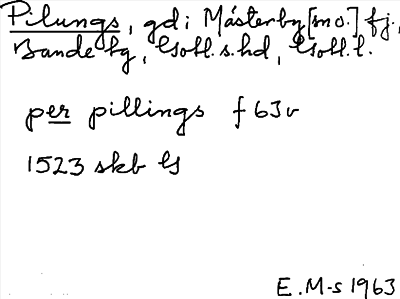 Pilungs, gd i Mästerby [mo.] fj.,
Bande tg, Gotl. s. hd, Gotl. l.
per pillings f 63v
1523 skb G
E. M-s 1963